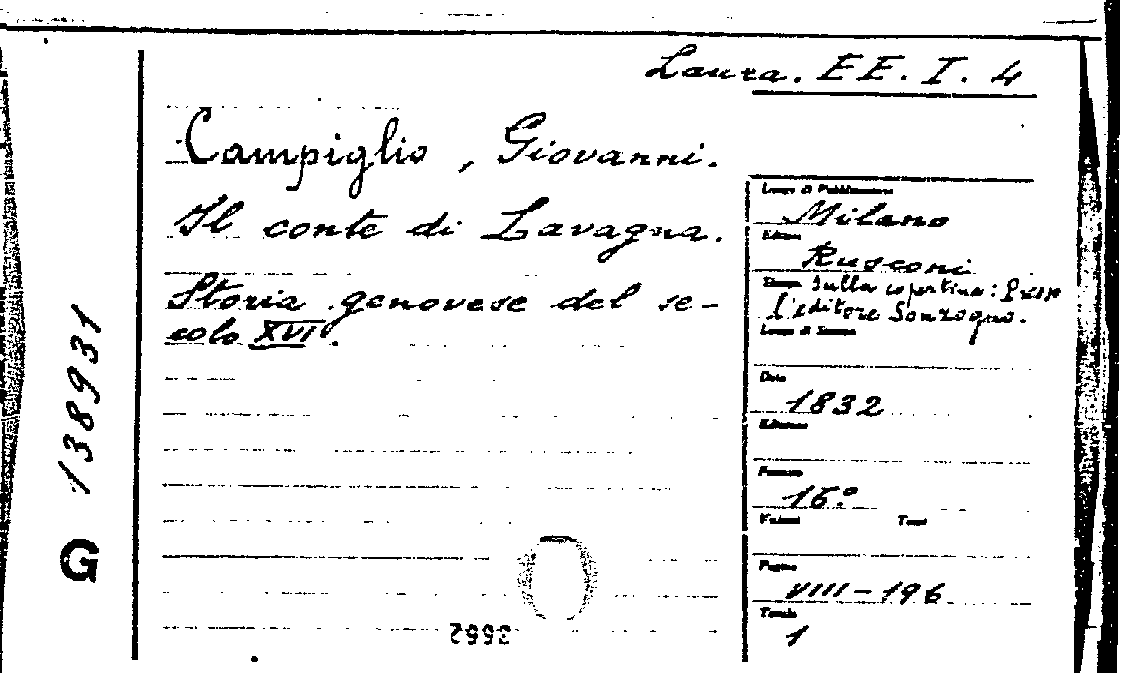 Laura. EE. I. 4
Campiglio, Giovanni.
Il conte di Lavagna.
Storia genovese del se-
colo XVI.
G 138931
Luogo di Pubblicazione
Milano
Editore
Rusconi
Stampa Sulla copertina: Presso
l'editore Sonzogno.
Luogo di Stampa
Data
1832
Edizione
Formato
16.º
Volumi Tomi
Pagine
VIII-196
Tavole
1